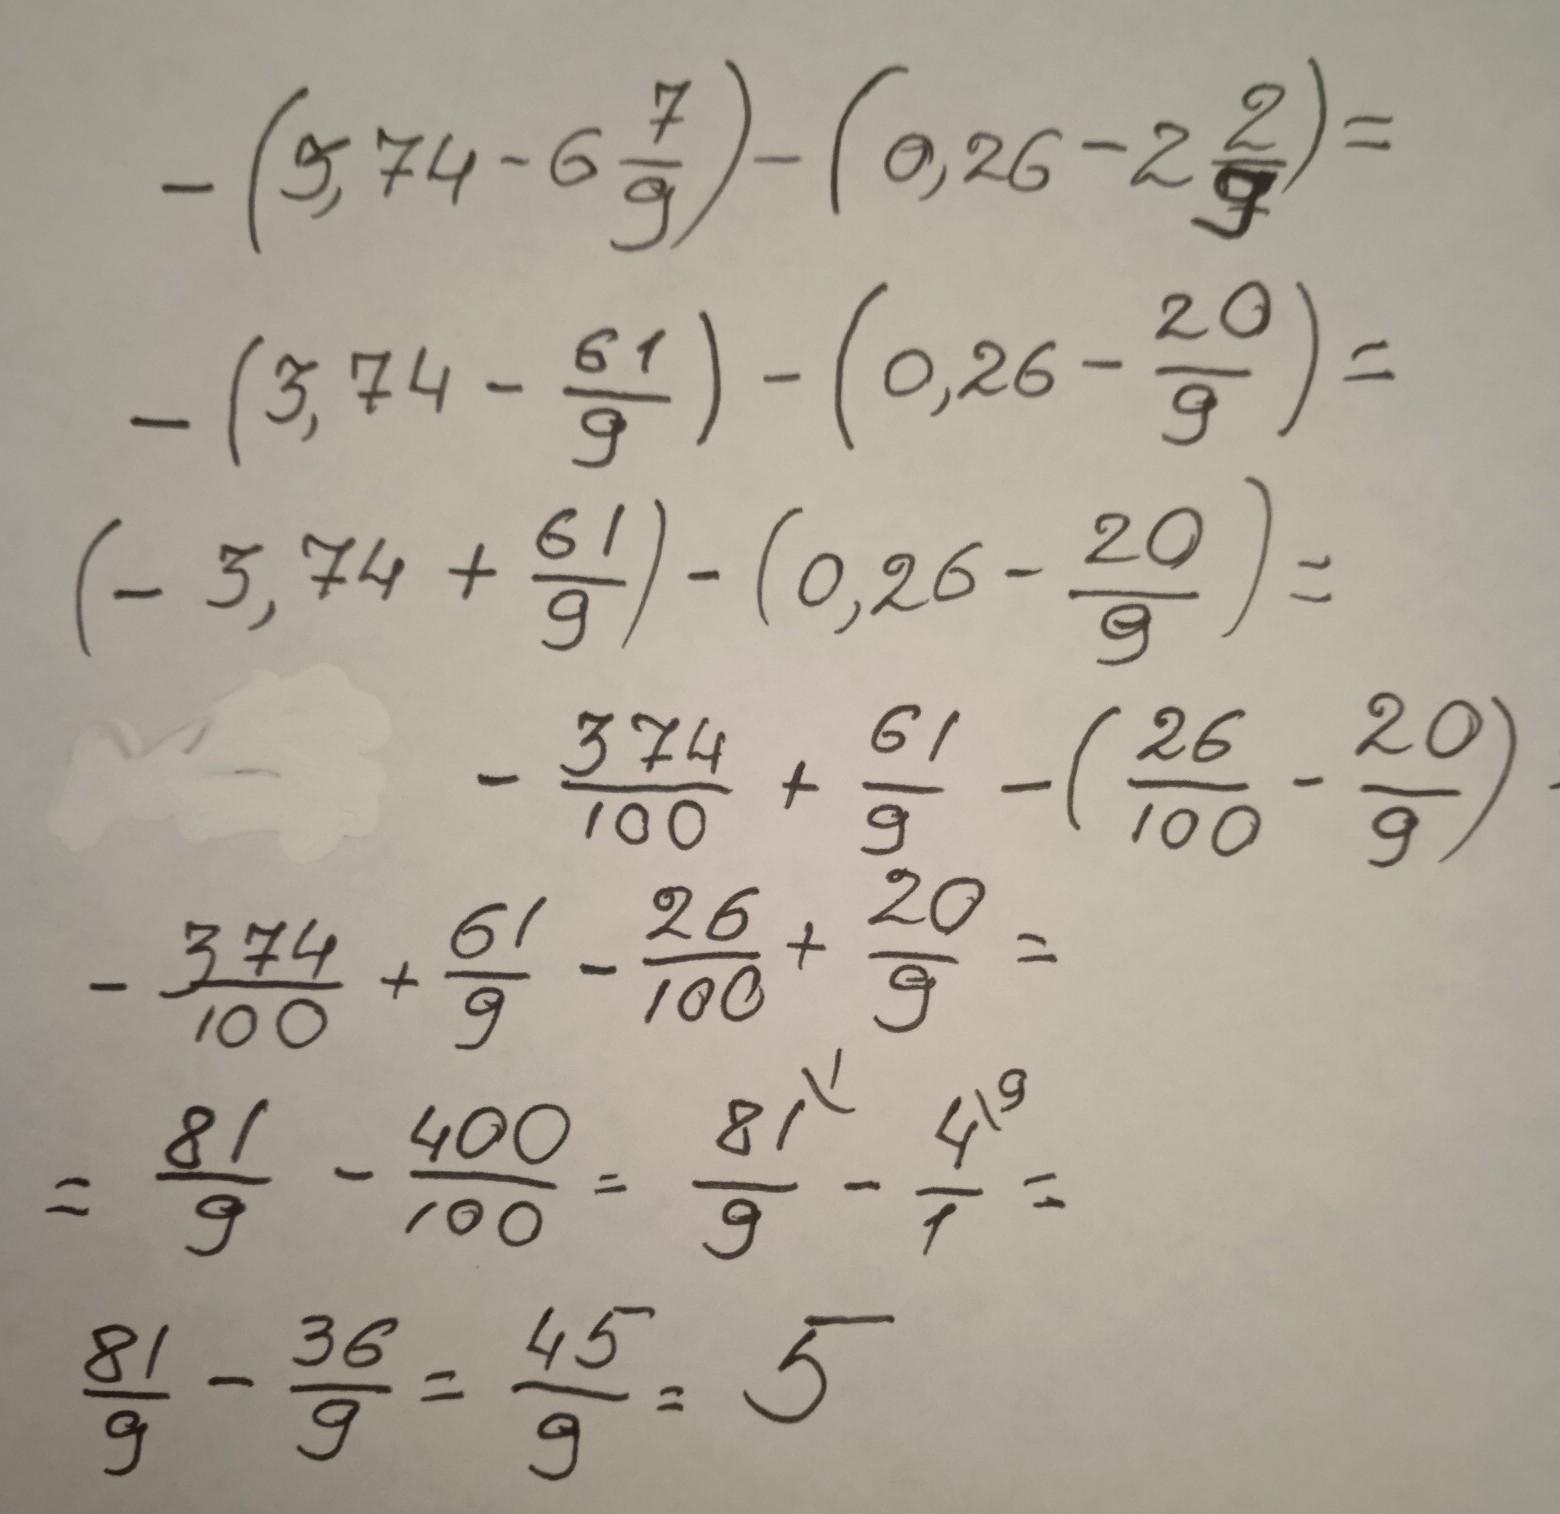 -(3,74 - 6 7/9) - (0,26 - 2 2/9) =
-(3,74 - 61/9) - (0,26 - 20/9) =
(- 3,74 + 61/9) - (0,26 - 20/9) =
- 374/100 + 61/9 - (26/100 - 20/9) -
- 374/100 + 61/9 - 26/100 + 20/9 =
= 81/9 - 400/100 = 81\1/9 - 4\9/1 =
81/9 - 36/9 = 45/9 = 5